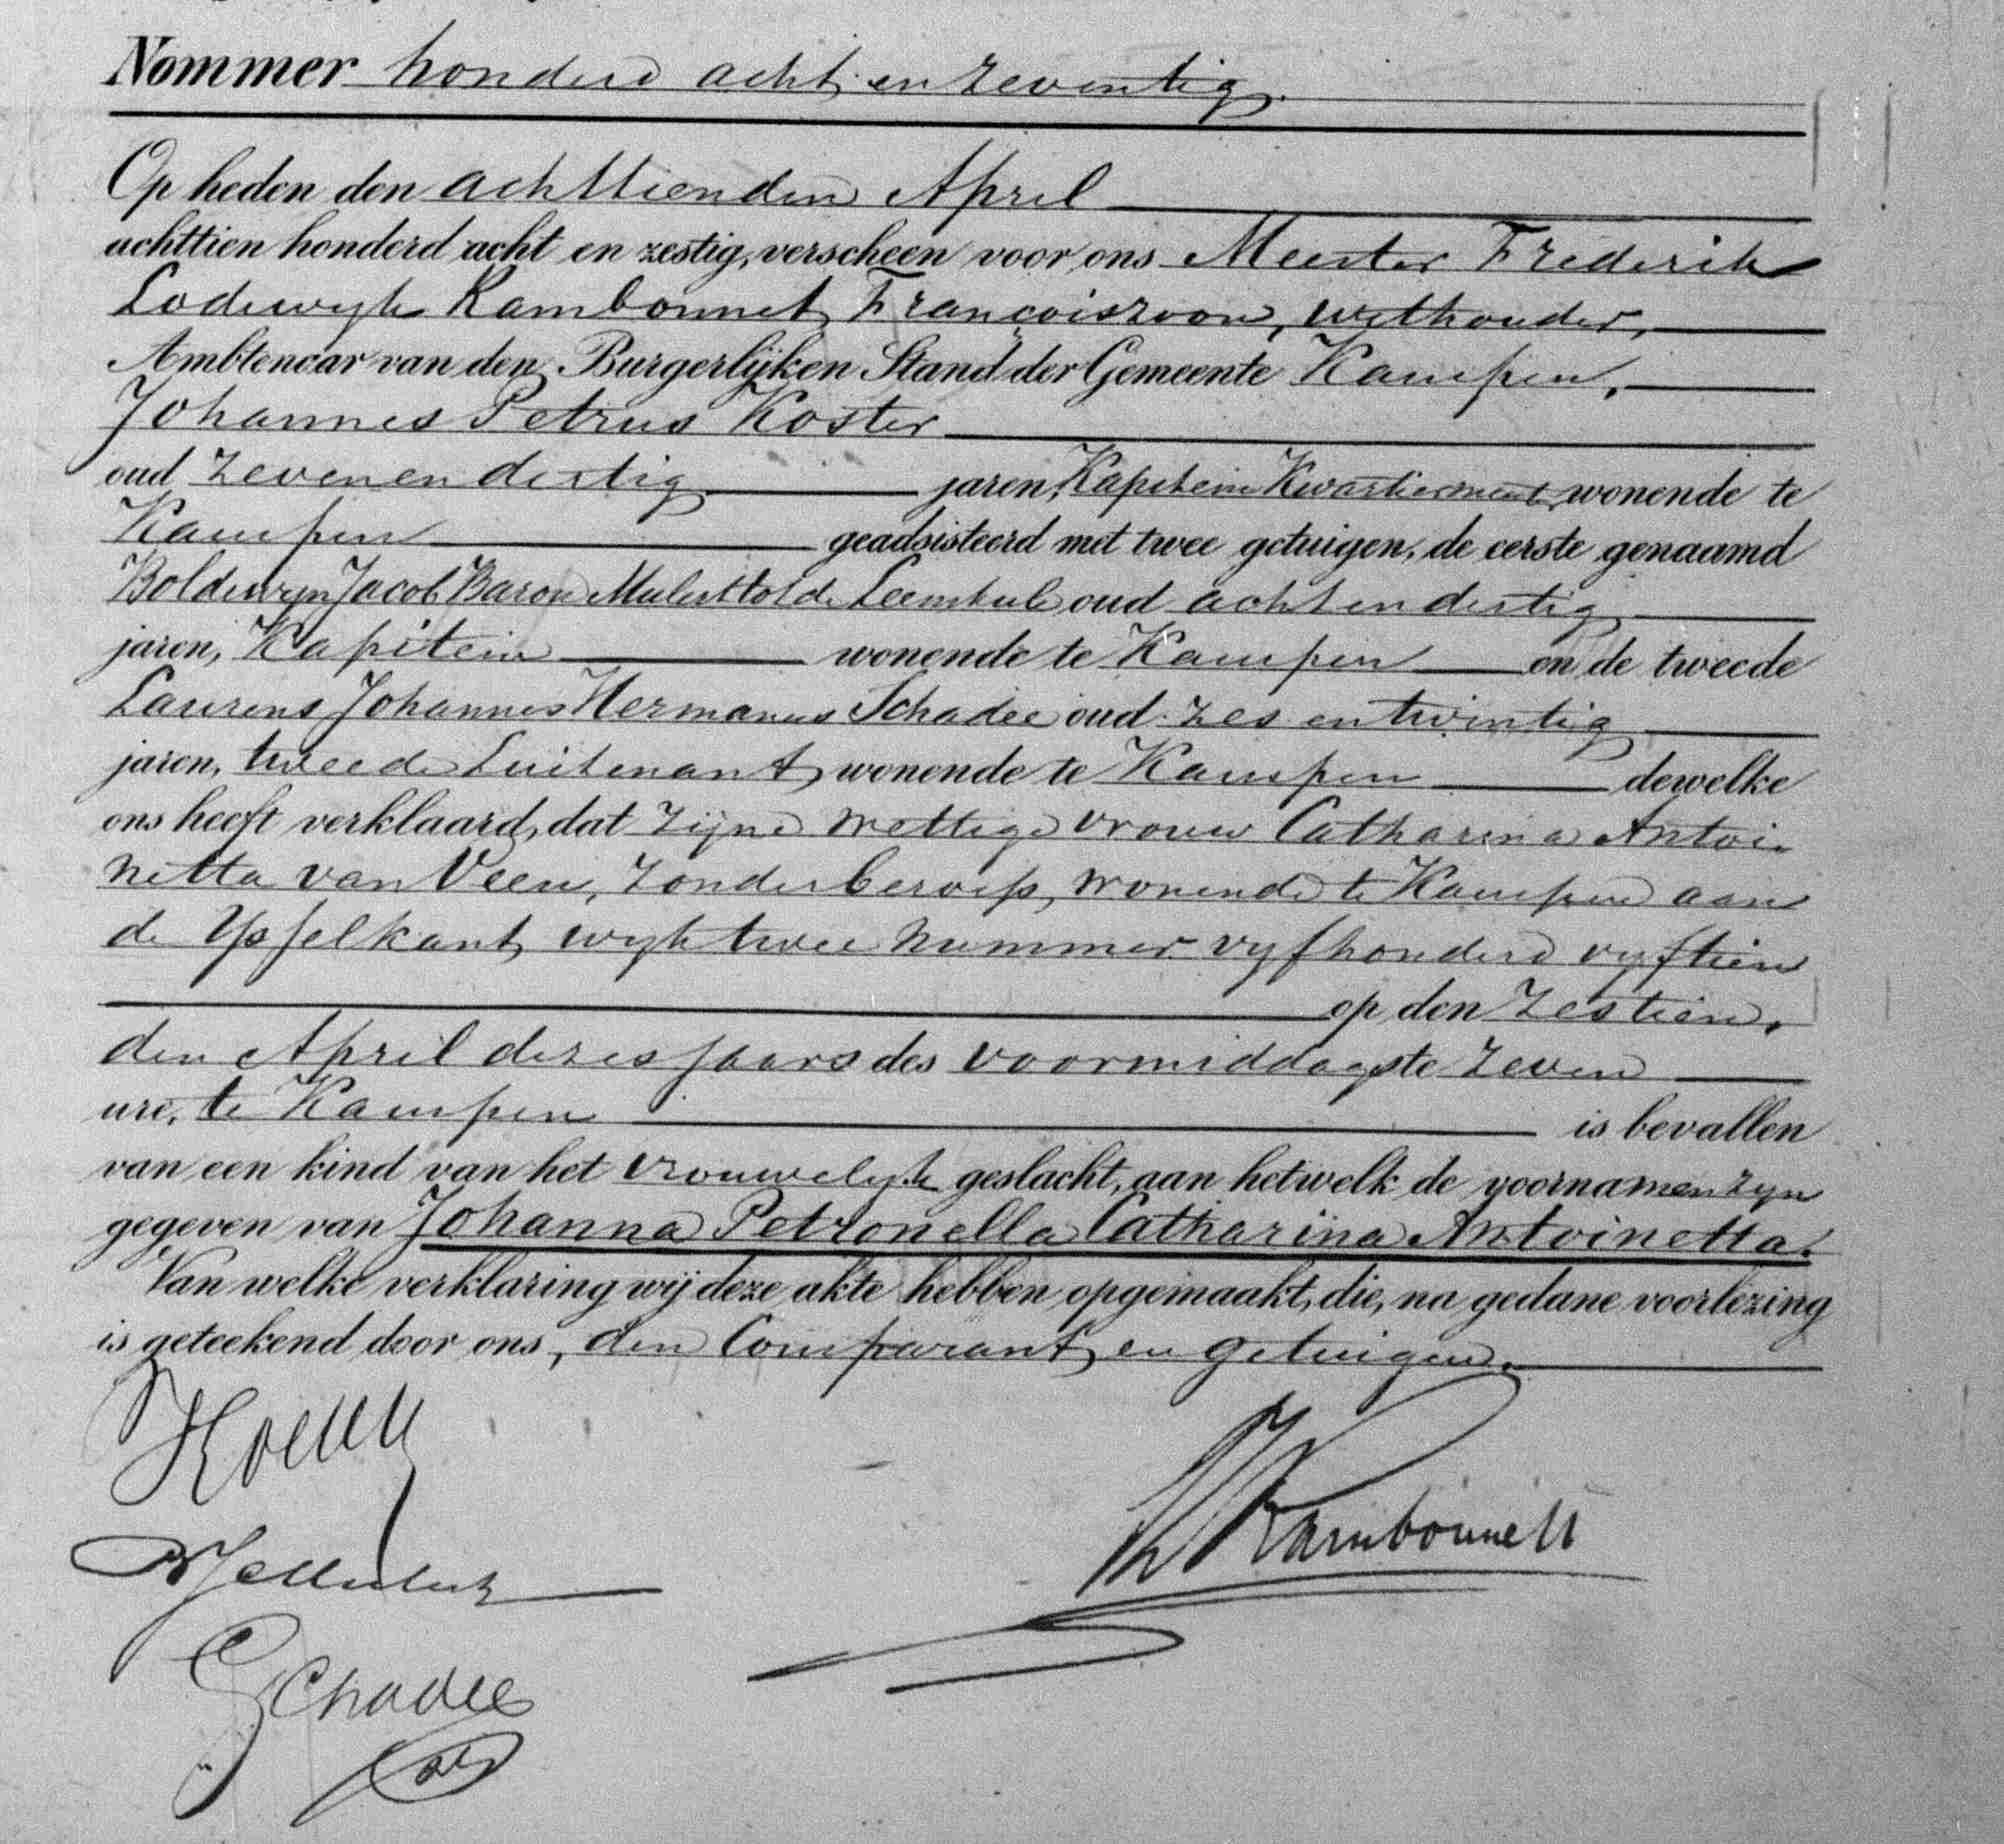 Nommer honderd acht en zeventig.
Op heden den achttienden April
achttien honderd acht en zestig, verscheen voor ons Meester Frederik
Lodewyk Rambonnet, Françoiszoon, wethouder,
Ambtenaar van den Burgerlijken Stand der Gemeente Kampen,
Johannes Petrus Koster
oud zevenendertig jaren, Kapitein Kwartiermeester, wonende te
Kampen geadsisteerd met twee getuigen, de eerste genaamd
Boldewyn Jacob Baron Mulert tot de Leemkule oud achtendertig
jaren, Kapitein wonende te Kampen en de tweede
Laurens Johannes Hermanus Schadee oud zes en twintig
jaren, tweede Luitenant, wonende te Kampen dewelke
ons heeft verklaard, dat zijne wettige vrouw Catharina Antoi-
netta van Veen, zonder beroep, wonende te Kampen aan
de Ysselkant, wyk twee nummer vyfhonderd vyftien
op den zestien-
den April dezes jaars des voormiddags te zeven
ure, te Kampen is bevallen
van een kind van het vrouwelyk geslacht, aan hetwelk de voornamen zyn
gegeven van Johanna Petronella Catharina Antoinetta.
Van welke verklaring wij deze akte hebben opgemaakt, die, na gedane voorlezing
is geteekend door ons, den Comparant en getuigen.
Rambonnet
Schadee